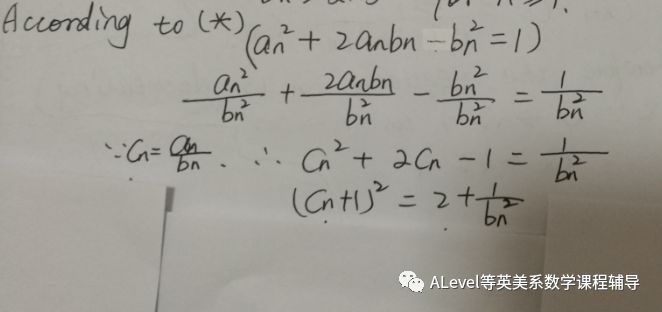 According to (*)
(an² + 2anbn - bn² = 1)
an²/bn² + 2anbn/bn² - bn²/bn² = 1/bn²
∵ Cn = an/bn. ∴ Cn² + 2Cn - 1 = 1/bn²
(Cn+1)² = 2 + 1/bn²
ALevel等英美系数学课程辅导